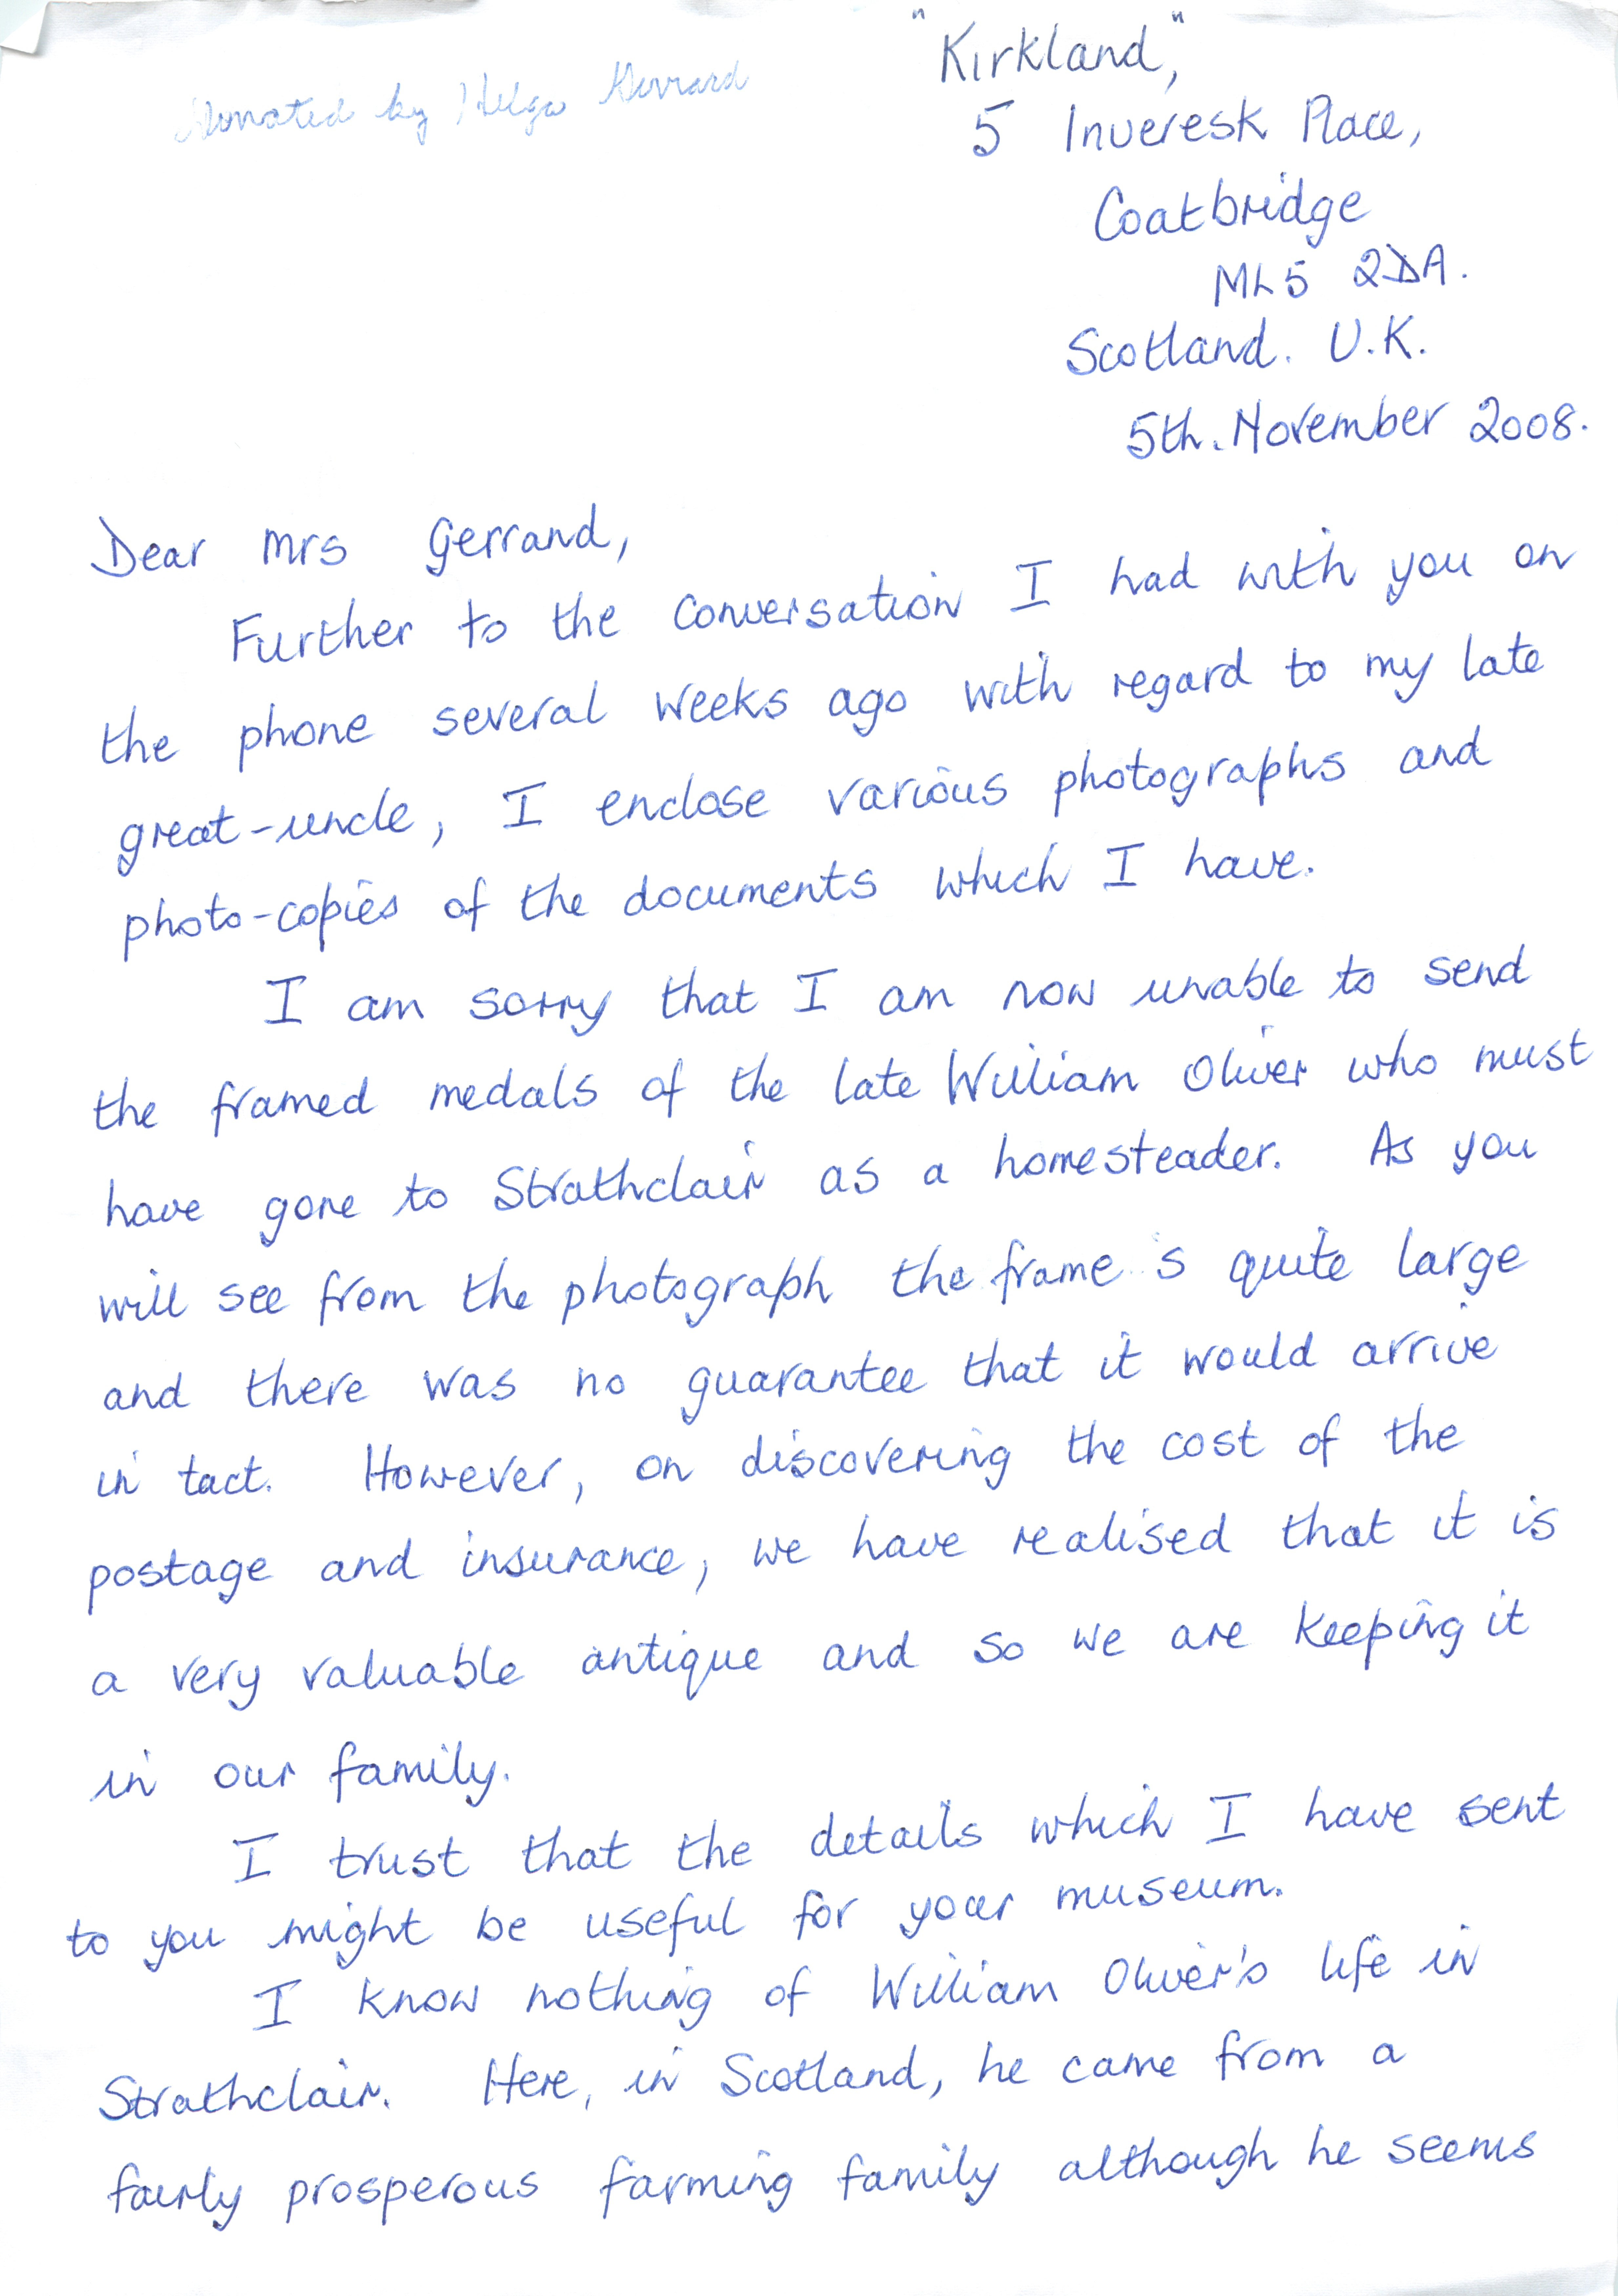 "Kirkland,"
Donated by Helga Gerrard
5 Inveresk Place,
Coatbridge
ML5 2DA.
Scotland. U.K.
5th. November 2008.
Dear Mrs Gerrand,
Further to the conversation I had with you on
the phone several weeks ago with regard to my late
great-uncle, I enclose various photographs and
photo-copies of the documents which I have.
I am sorry that I am now unable to send
the framed medals of the late William Oliver who must
have gone to Strathclair as a homesteader. As you
will see from the photograph the frame is quite large
and there was no guarantee that it would arrive
in tact. However, on discovering the cost of the
postage and insurance, we have realised that it is
a very valuable antique and so we are keeping it
in our family.
I trust that the details which I have sent
to you might be useful for your museum.
I know nothing of William Oliver's life in
Strathclair. Here, in Scotland, he came from a
fairly prosperous farming family although he seems